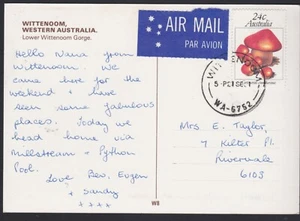 WITTENOOM,
WESTERN AUSTRALIA.
Lower Wittenoom Gorge.
AIR MAIL
PAR AVION
24c
Australia
WITTENOOM
WA-6752
Hello Nana from
Wittenoom. We
came here for the
weekend & have
seen some fabulous
places. Today we
head home via
Millstream & Python
Pool.
Love Bev, Eugen
& Sandy
xxxx
Mrs E. Taylor,
7 Kelter Pl.
Riverwale
6103
W8